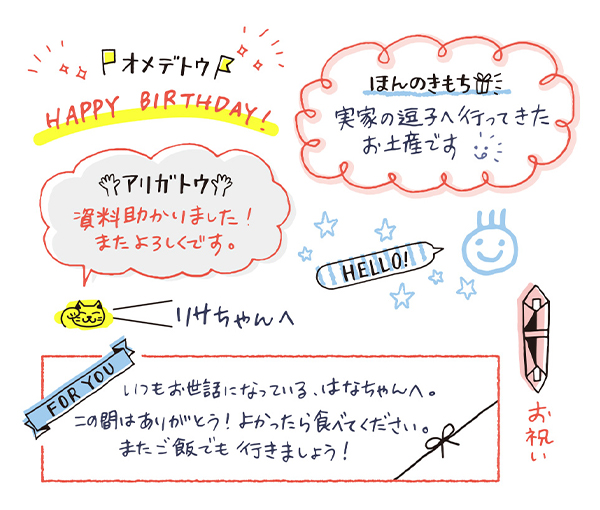 オメデトウ
HAPPY BIRTHDAY!
ほんのきもち
実家の逗子へ行ってきた
お土産です
アリガトウ
資料助かりました！
またよろしくです。
HELLO!
リサちゃんへ
お祝い
FOR YOU
いつもお世話になっている、はなちゃんへ。
この間はありがとう！よかったら食べてください。
またご飯でも行きましょう！